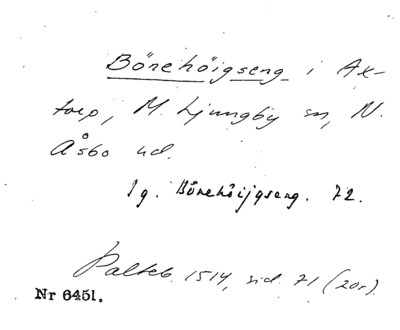 Börehöigseng i Ax-
torp, M. Ljungby sn, N.
Åsbo hd.
Jg. Börehöijgseng. 72.
Palteb. 1514, sid. 71 (20r).
Nr 6451.